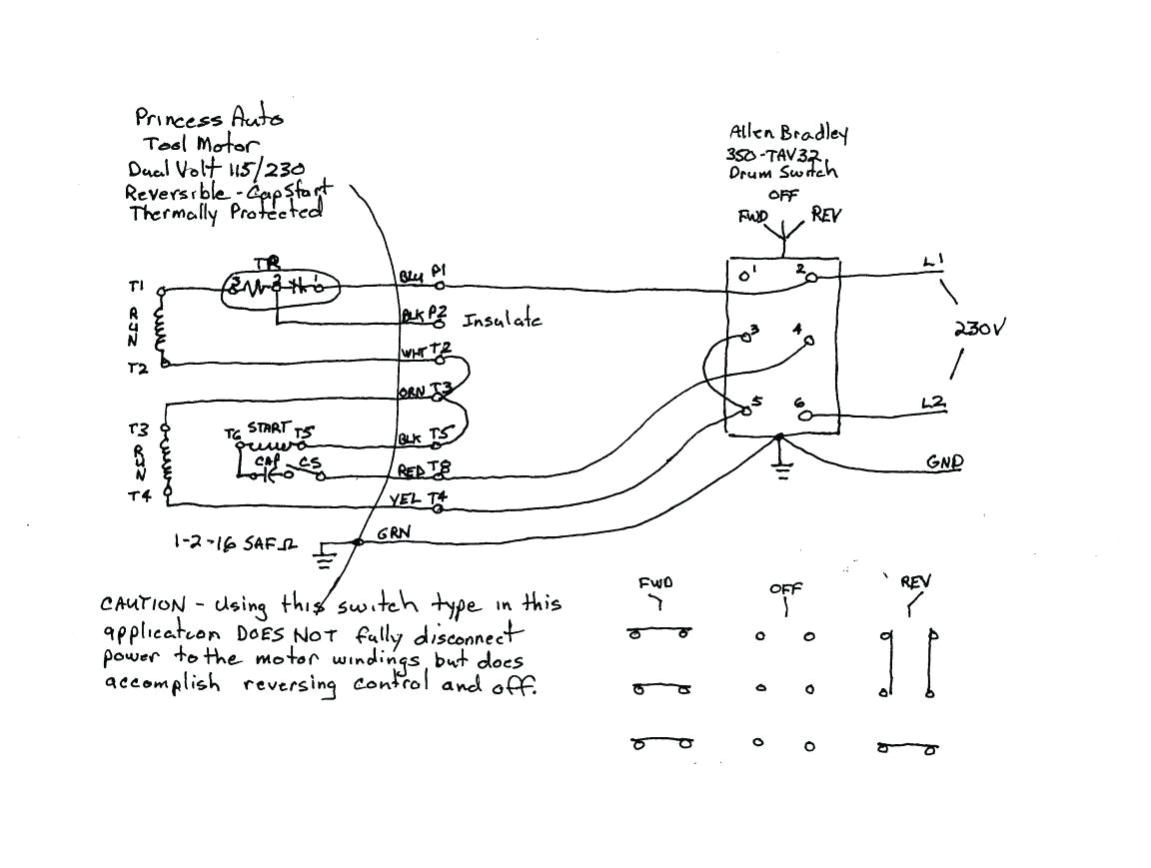 Princess Auto
Tool Motor
Dual Volt 115/230
Reversible - Cap Start
Thermally Protected
Allen Bradley
350-TAV32
Drum Switch
OFF
FWD REV
TP
3 2 1
T1
RUN
T2
BLU P1
BLK P2 Insulate
WHT T2
ORN T3
T3
RUN
T4
T6 START T5
CAP CS
BLK T5
RED T8
YEL T4
GRN
1 2
3 4
5 6
L1
230V
L2
GND
1-2-16 SAF Ω
CAUTION - Using this switch type in this
application DOES NOT fully disconnect
power to the motor windings but does
accomplish reversing control and off.
FWD OFF REV